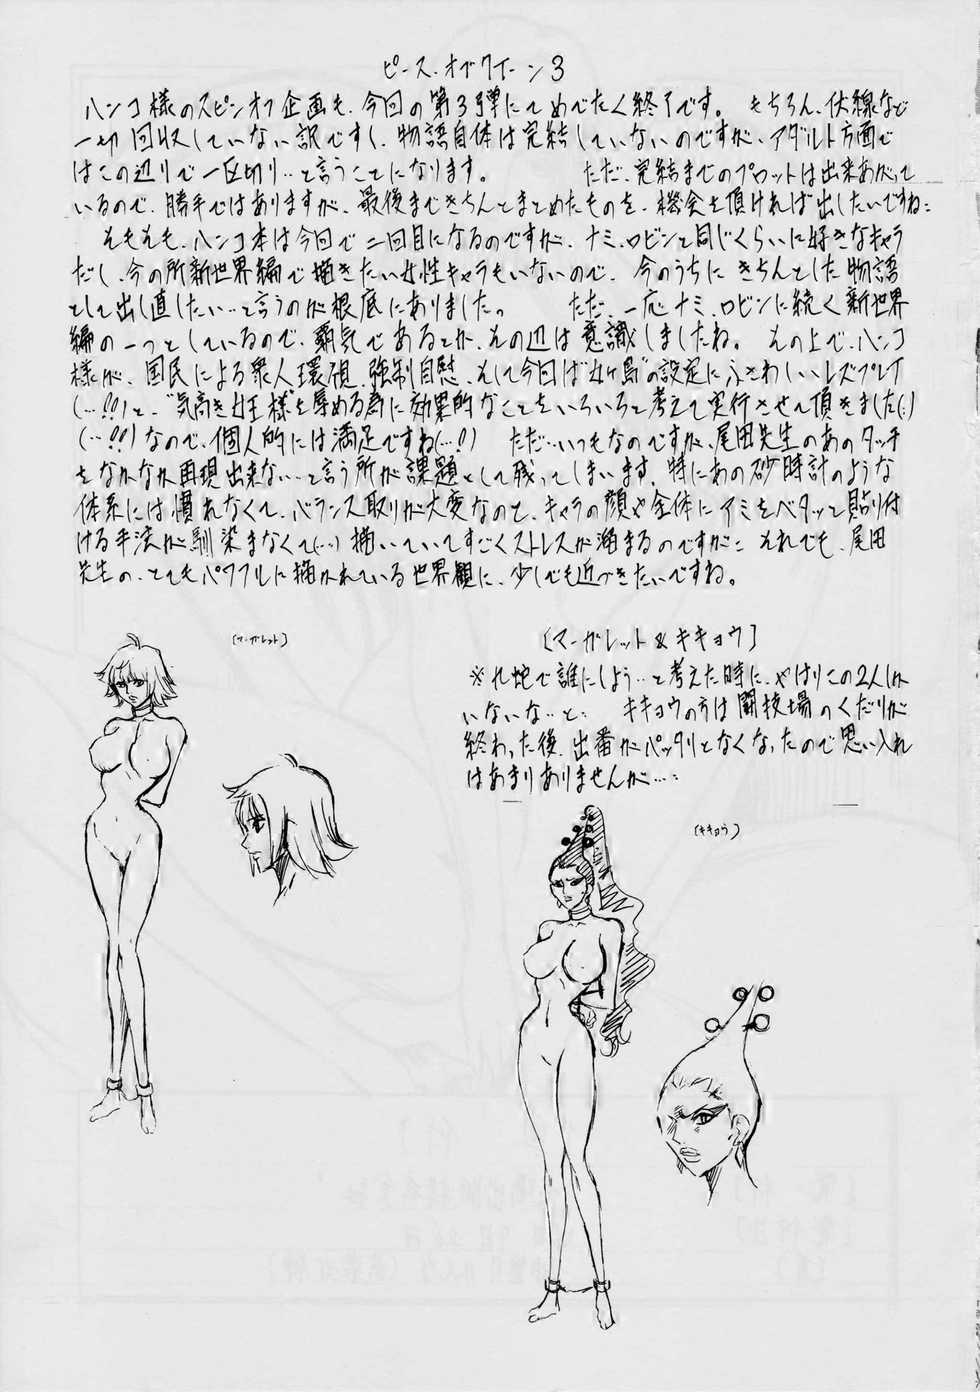 ピース・オブ・クイーン3
ハンコ様のスピンオフ企画も、今回の第3弾にてめでたく終了です。 もちろん、伏線など
一切回収していない訳ですし、物語自体は完結していないのですが、アダルト方面で
はこの辺りで一区切り…と言うことになります。 ただ、完結までのプロットは出来あがって
いるので、勝手ではありますが、最後まできちんとまとめたものを、機会を頂ければ出したいですね…
そもそも、ハンコ本は今回で二回目になるのですが、ナミ、ロビンと同じくらいに好きなキャラ
だし、今の所新世界編で描きたい女性キャラもいないので、今のうちにきちんとした物語
として出し直したい…と言うのが根底にありましたっ ただ、一応ナミ、ロビンに続く新世界
編の一つとしているので、覇気であるとか、その辺は意識しましたね。 その上で、ハンコ
様が、国民による衆人環視、強制自慰、そして今回は“女ヶ島”の設定にふさわしいレズプレイ
(…!!)と、“気高き女王様”を辱める為に効果的なことをいろいろと考えて実行させて頂きました(…)
(…!!)なので、個人的には満足ですね(…!) ただ…いつもなのですが、尾田先生のあのタッチ
をなかなか再現出来ない…と言う所が課題として残ってしまいます。特にあの砂時計のような
体系には慣れなくて、バランス取りが大変なのと、キャラの顔や全体にアミをベタッと貼り付
ける手法が馴染まなくて(…)描いていてすごくストレスが溜まるのですが… それでも、尾田
先生の、とてもパワフルに描かれている世界観に、少しでも近づきたいですね。
(マーガレット)
[マーガレット&キキョウ]
※九蛇で誰にしよう…と考えた時に、やはりこの2人しか
いないな…と… キキョウの方は闘技場のくだりが
終わった後、出番がパッタリとなくなったので思い入れ
はあまりありませんが…
(キキョウ)